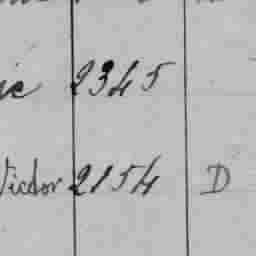 2345
Victor 2154 D